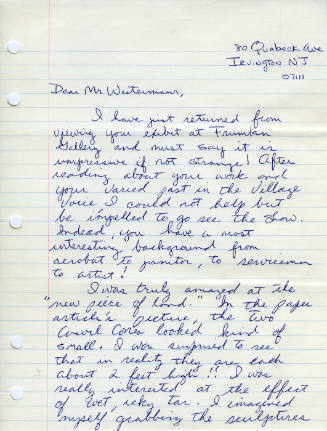 80 Quabeck Ave
Irvington NJ
07111
Dear Mr. Westermann,
I have just returned from
viewing your exibit at Frumkin
Gallery and must say it is
impressive if not strange! After
reading about your work and
your varied past in the Village
Voice I could not help but
be impelled to go see the show.
Indead, you have a most
interesting background from
acrobat to janitor, to serviceman
to artist!
I was truly amazed at the
"new piece of land." In the paper
article's picture, the two
Cons looked kind of
small. I was surprised to see
that in reality they are each
about 2 feet high!! I was
really interested at the effect
of wet, icky tar. I imagined
myself grabbing the sculptures